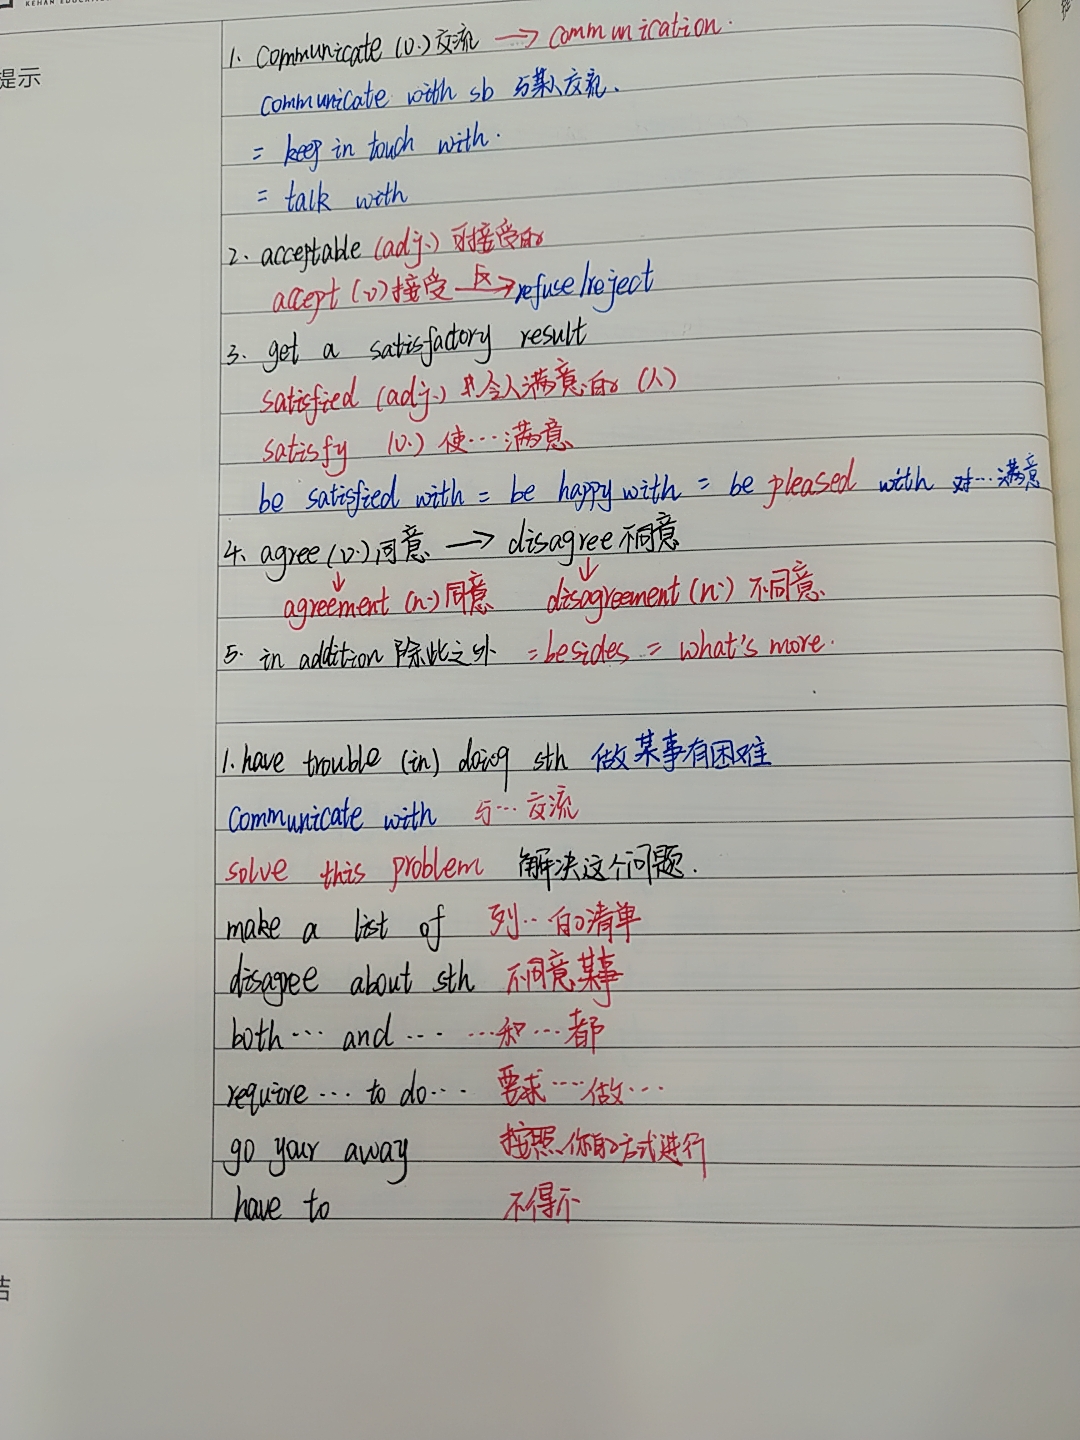 KEHAN EDUCATION
提示
1. communicate (v.) 交流 → communication.
communicate with sb 与某人交流.
= keep in touch with.
= talk with
2. acceptable (adj.) 可接受的
accept (v) 接受 反→ refuse/reject
3. get a satisfactory result
satisfied (adj.) 令人满意的 (人)
satisfy (v.) 使…满意
be satisfied with = be happy with = be pleased with 对…满意
4. agree (v.) 同意 → disagree 不同意
↓ ↓
agreement (n.) 同意 disagreement (n.) 不同意.
5. in addition 除此之外 = besides = what's more.
1. have trouble (in) doing sth 做某事有困难
communicate with 与…交流
solve this problem 解决这个问题.
make a list of 列…的清单
disagree about sth 不同意某事
both … and … …和…都
require … to do … 要求…做…
go your away 按照你的方式进行
have to 不得不
结